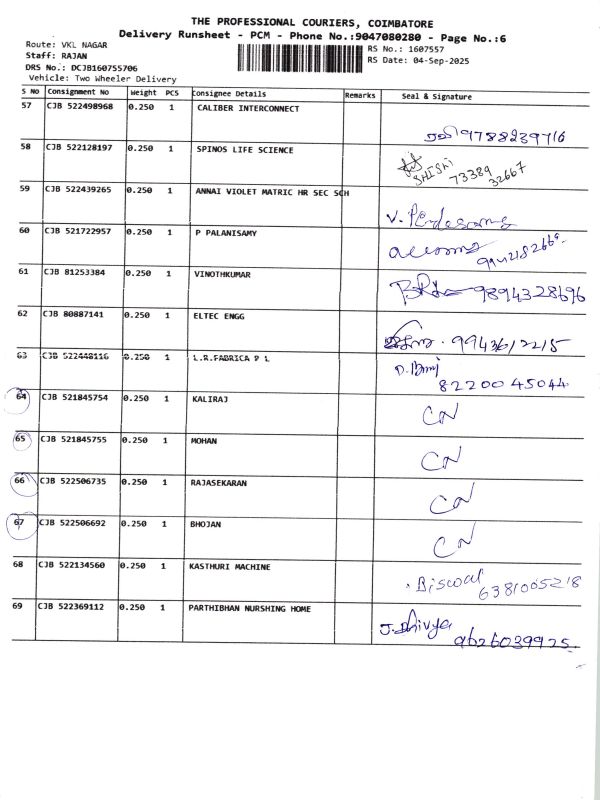 THE PROFESSIONAL COURIERS, COIMBATORE
Delivery Runsheet - PCM - Phone No.:9047080280 - Page No.:6
Route: VKL NAGAR
Staff: RAJAN
DRS No.: DCJB160755706
Vehicle: Two Wheeler Delivery
RS No.: 1607557
RS Date: 04-Sep-2025
S No Consignment No Weight PCS Consignee Details Remarks Seal & Signature
57 CJB 522498968 0.250 1 CALIBER INTERCONNECT
9788239716
58 CJB 522128197 0.250 1 SPINOS LIFE SCIENCE
SHISHI
73389
32667
59 CJB 522439265 0.250 1 ANNAI VIOLET MATRIC HR SEC SCH
V.
60 CJB 521722957 0.250 1 P PALANISAMY
61 CJB 81253384 0.250 1 VINOTHKUMAR
9894328696
62 CJB 80887141 0.250 1 ELTEC ENGG
9943612215
63 CJB 522448116 0.250 1 L.R.FABRICA P L
82200 45044
64 CJB 521845754 0.250 1 KALIRAJ
CN
65 CJB 521845755 0.250 1 MOHAN
CN
66 CJB 522506735 0.250 1 RAJASEKARAN
CN
67 CJB 522506692 0.250 1 BHOJAN
CN
68 CJB 522134560 0.250 1 KASTHURI MACHINE
Biswal
6381005218
69 CJB 522369112 0.250 1 PARTHIBHAN NURSHING HOME
J. Dhivya
9626039925.